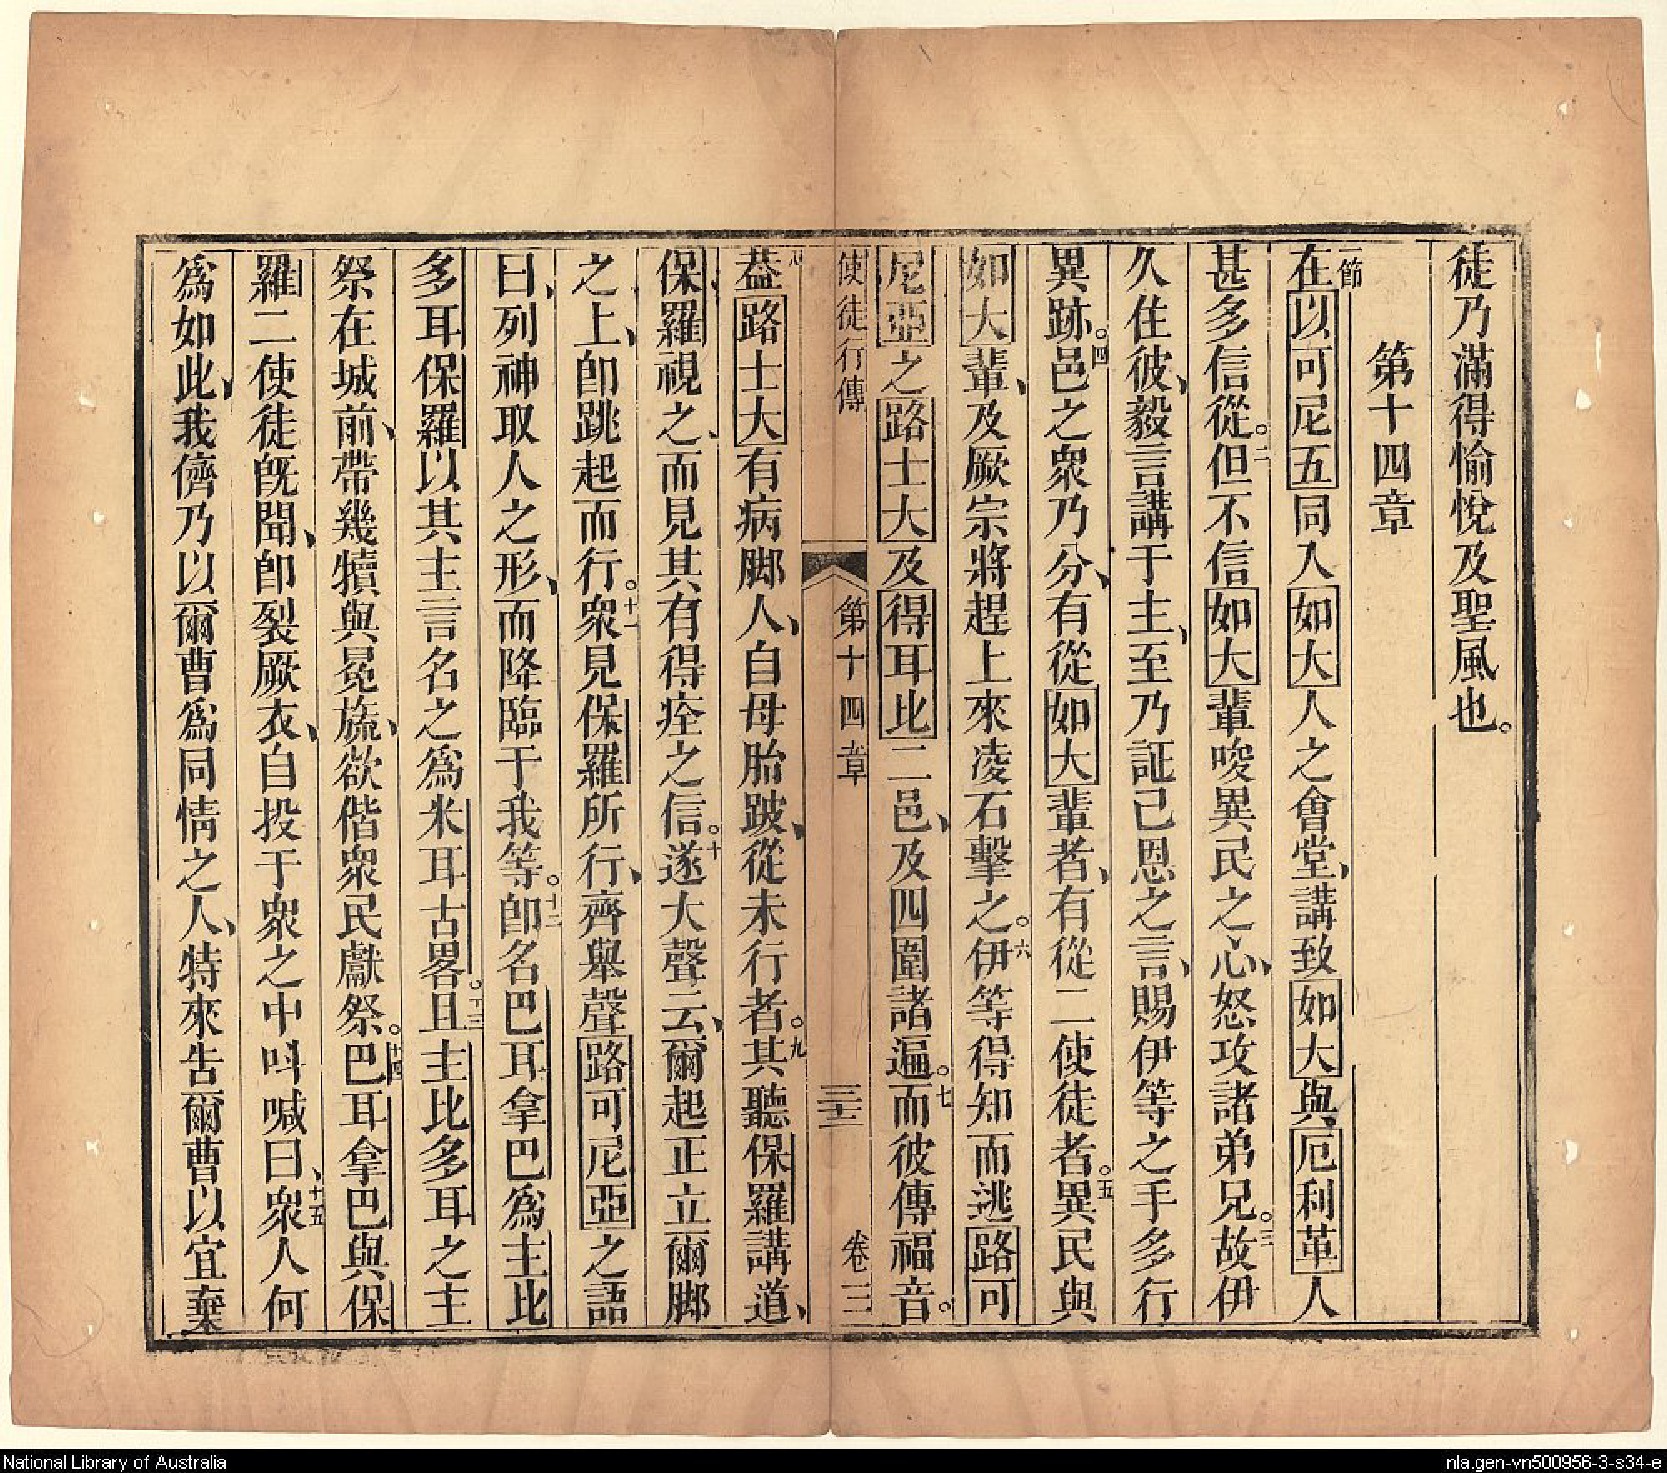 徒乃滿得愉悅及聖風也。
第十四章
一節在以可尼五同入如大人之會堂、講致如大與厄利革人
甚多信從。二但不信如大輩唆異民之心、怒攻諸弟兄。三故伊
久住彼、毅言講于主、至乃証己恩之言、賜伊等之手多行
異跡。四邑之眾乃分、有從如大輩者、有從二使徒者。五異民與
如大輩、及厥宗將趕上來凌石擊之。六伊等得知而逃路可
尼亞之路士大及得耳比二邑、及四圍諸遍。七而彼傳福音。
使徒行傳 第十四章 三十三 卷三
八葢路士大有病脚人、自母胎跛、從未行者。九其聽保羅講道、
保羅視之、而見其有得痊之信。十遂大聲云、爾起正立爾脚
之上、卽跳起而行。十一眾見保羅所行、齊舉聲路可尼亞之語
曰、列神取人之形、而降臨于我等。十二卽名巴耳拿巴為主比
多耳保羅以其主言名之為米耳古畧。十三且主比多耳之主
祭在城前、帶幾犢與冕旒、欲偕眾民獻祭。十四巴耳拿巴與保
羅二使徒旣聞、卽裂厥衣、自投于眾之中呌喊曰、十五眾人何
為如此、我儕乃以爾曹為同情之人、特來告爾曹以宜棄
National Library of Australia
nla.gen-vn500956-3-s34-e